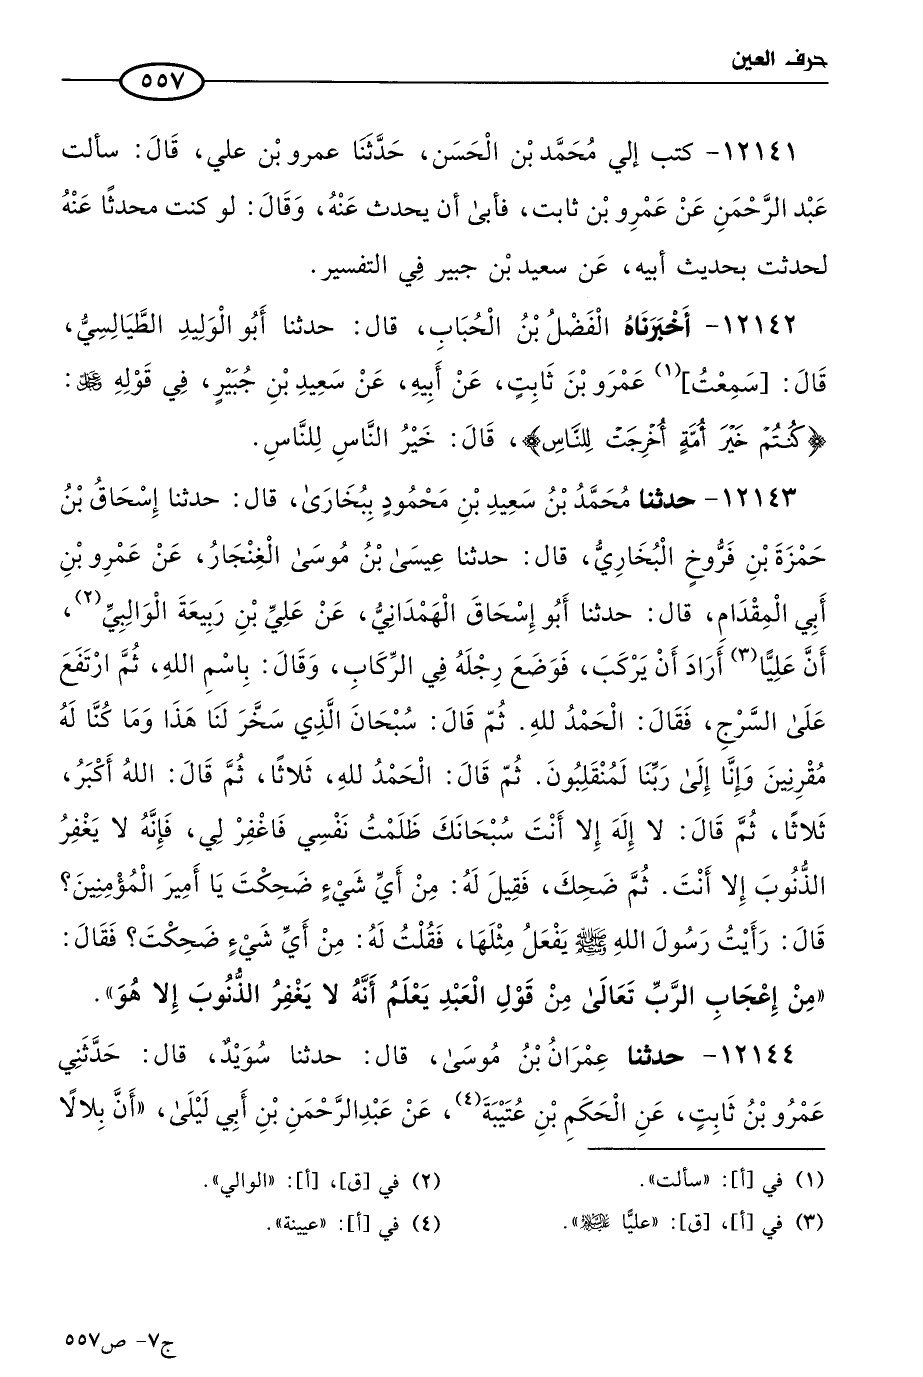 حرف العين
٥٥٧
١٢١٤١- كتب إلي مُحَمَّد بْن الْحَسَن، حَدَّثَنَا عمرو بْن علي، قَالَ: سألت
عَبْد الرَّحْمَنِ عَنْ عَمْرِو بْن ثابت، فأبىٰ أن يحدث عَنْهُ، وَقَالَ: لو كنت محدثًا عَنْهُ
لحدثت بحديث أبيه، عَن سعيد بْن جبير فِي التفسير.
١٢١٤٢- أَخْبَرَنَاهُ الْفَضْلُ بْنُ الْحُبَابِ، قال: حدثنا أَبُو الْوَلِيدِ الطَّيَالِسِيُّ،
قَالَ: [سَمِعْتُ](١) عَمْرَو بْنَ ثَابِتٍ، عَنْ أَبِيهِ، عَنْ سَعِيدِ بْنِ جُبَيْرٍ، فِي قَوْلِهِ ﷻ:
﴿كُنتُمْ خَيْرَ أُمَّةٍ أُخْرِجَتْ لِلنَّاسِ﴾، قَالَ: خَيْرُ النَّاسِ لِلنَّاسِ.
١٢١٤٣- حدثنا مُحَمَّدُ بْنُ سَعِيدِ بْنِ مَحْمُودٍ بِبُخَارَىٰ، قال: حدثنا إِسْحَاقُ بْنُ
حَمْزَةَ بْنِ فَرُّوخٍ الْبُخَارِيُّ، قال: حدثنا عِيسَىٰ بْنُ مُوسَىٰ الْغِنْجَارُ، عَنْ عَمْرِو بْنِ
أَبِي الْمِقْدَامِ، قال: حدثنا أَبُو إِسْحَاقَ الْهَمْدَانِيُّ، عَنْ عَلِيِّ بْنِ رَبِيعَةَ الْوَالِبِيِّ(٢)،
أَنَّ عَلِيًّا(٣) أَرَادَ أَنْ يَرْكَبَ، فَوَضَعَ رِجْلَهُ فِي الرِّكَابِ، وَقَالَ: بِاسْمِ اللهِ، ثُمَّ ارْتَفَعَ
عَلَىٰ السَّرْجِ، فَقَالَ: الْحَمْدُ للهِ. ثُمّ قَالَ: سُبْحَانَ الَّذِي سَخَّرَ لَنَا هَذَا وَمَا كُنَّا لَهُ
مُقْرِنِينَ وَإِنَّا إِلَىٰ رَبِّنَا لَمُنْقَلِبُونَ. ثُمّ قَالَ: الْحَمْدُ للهِ، ثَلاثًا، ثُمَّ قَالَ: اللهُ أَكْبَرُ،
ثَلاثًا، ثُمَّ قَالَ: لا إِلَهَ إِلا أَنْتَ سُبْحَانَكَ ظَلَمْتُ نَفْسِي فَاغْفِرْ لِي، فَإِنَّهُ لا يَغْفِرُ
الذُّنُوبَ إِلا أَنْتَ. ثُمَّ ضَحِكَ، فَقِيلَ لَهُ: مِنْ أَيِّ شَيْءٍ ضَحِكْتَ يَا أَمِيرَ الْمُؤْمِنِينَ؟
قَالَ: رَأَيْتُ رَسُولَ اللهِ ﷺ يَفْعَلُ مِثْلَهَا، فَقُلْتُ لَهُ: مِنْ أَيِّ شَيْءٍ ضَحِكْتَ؟ فَقَالَ:
«مِنْ إِعْجَابِ الرَّبِّ تَعَالَىٰ مِنْ قَوْلِ الْعَبْدِ يَعْلَمُ أَنَّهُ لا يَغْفِرُ الذُّنُوبَ إِلا هُوَ».
١٢١٤٤- حدثنا عِمْرَانُ بْنُ مُوسَىٰ، قال: حدثنا سُوَيْدٌ، قال: حَدَّثَنِي
عَمْرُو بْنُ ثَابِتٍ، عَنِ الْحَكَمِ بْنِ عُتَيْبَةَ(٤)، عَنْ عَبْدِالرَّحْمَنِ بْنِ أَبِي لَيْلَىٰ، «أَنَّ بِلالًا
(١) في [أ]: «سألت».
(٢) في [ق]، [أ]: «الوالي».
(٣) في [أ]، [ق]: «عليًّا عليه السلام».
(٤) في [أ]: «عيينة».
ج٧- ص٥٥٧